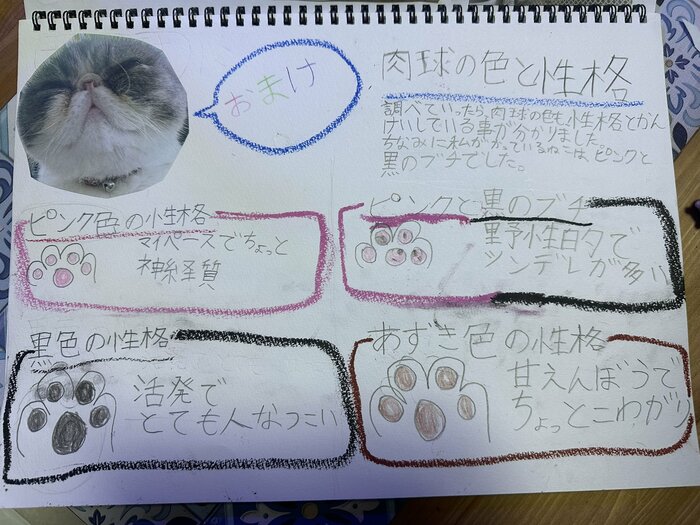 おまけ
肉球の色と性格
調べていったら、肉球の色も、性格とかん
けいしている事が分かりました。
ちなみに私がかっているねこは、ピンクと
黒のブチでした。
ピンク色の性格
マイペースでちょっと
神経質
ピンクと黒のブチ
野性的で
ツンデレが多い
黒色の性格
活発で
とても人なつこい
あずき色の性格
甘えんぼうで
ちょっとこわがり